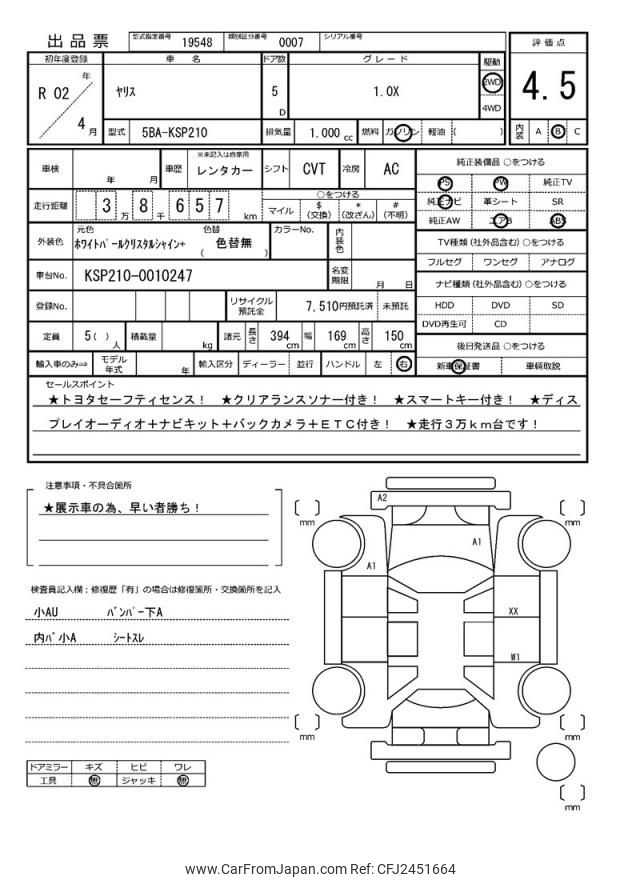 出品票
型式指定番号 19548 類別区分番号 0007 シリアル番号
初年度登録 車名 ドア数 グレード 駆動 評価点
R 02 年 4 月 ヤリス 5 D 1.0X 2WD 4WD 4.5
型式 5BA-KSP210 排気量 1.000 cc 燃料 ガソリン 軽油 ( ) 内装 A B C
車検 年 月 車歴 ※未記入は自家用 レンタカー シフト CVT 冷房 AC
走行距離 3 万 8 千 6 5 7 km
○をつける
マイル $ (交換) * (改ざん) # (不明)
外装色 元色 ホワイトパールクリスタルシャイン+ 色替 ( 色替無 ) カラーNo. 内装色
車台No. KSP210-0010247 名変期限 月 日
登録No. リサイクル預託金 7,510円預託済 未預託
定員 5( ) 人 積載量 kg 諸元 長さ 394 cm 幅 169 cm 高さ 150 cm
輸入車のみ⇒ モデル年式 年 輸入区分 ディーラー 並行 ハンドル 左 右
純正装備品 ○をつける
PS PW 純正TV
純正ナビ 革シート SR
純正AW エアB ABS
TV種類(社外品含む) ○をつける
フルセグ ワンセグ アナログ
ナビ種類(社外品含む) ○をつける
HDD DVD SD
DVD再生可 CD
後日発送品 ○をつける
新車保証書 車輌取説
セールスポイント
★トヨタセーフティセンス! ★クリアランスソナー付き! ★スマートキー付き! ★ディス
プレイオーディオ+ナビキット+バックカメラ+ETC付き! ★走行3万km台です!
注意事項・不具合箇所
★展示車の為、早い者勝ち!
検査員記入欄:修復歴「有」の場合は修復箇所・交換箇所を記入
小AU バンパー下A
内バ小A シートスレ
ドアミラー キズ ヒビ ワレ
工具 無 ジャッキ 無
A2
A1
A1
XX
W1
mm
mm
mm
mm
mm
www.CarFromJapan.com Ref: CFJ2451664